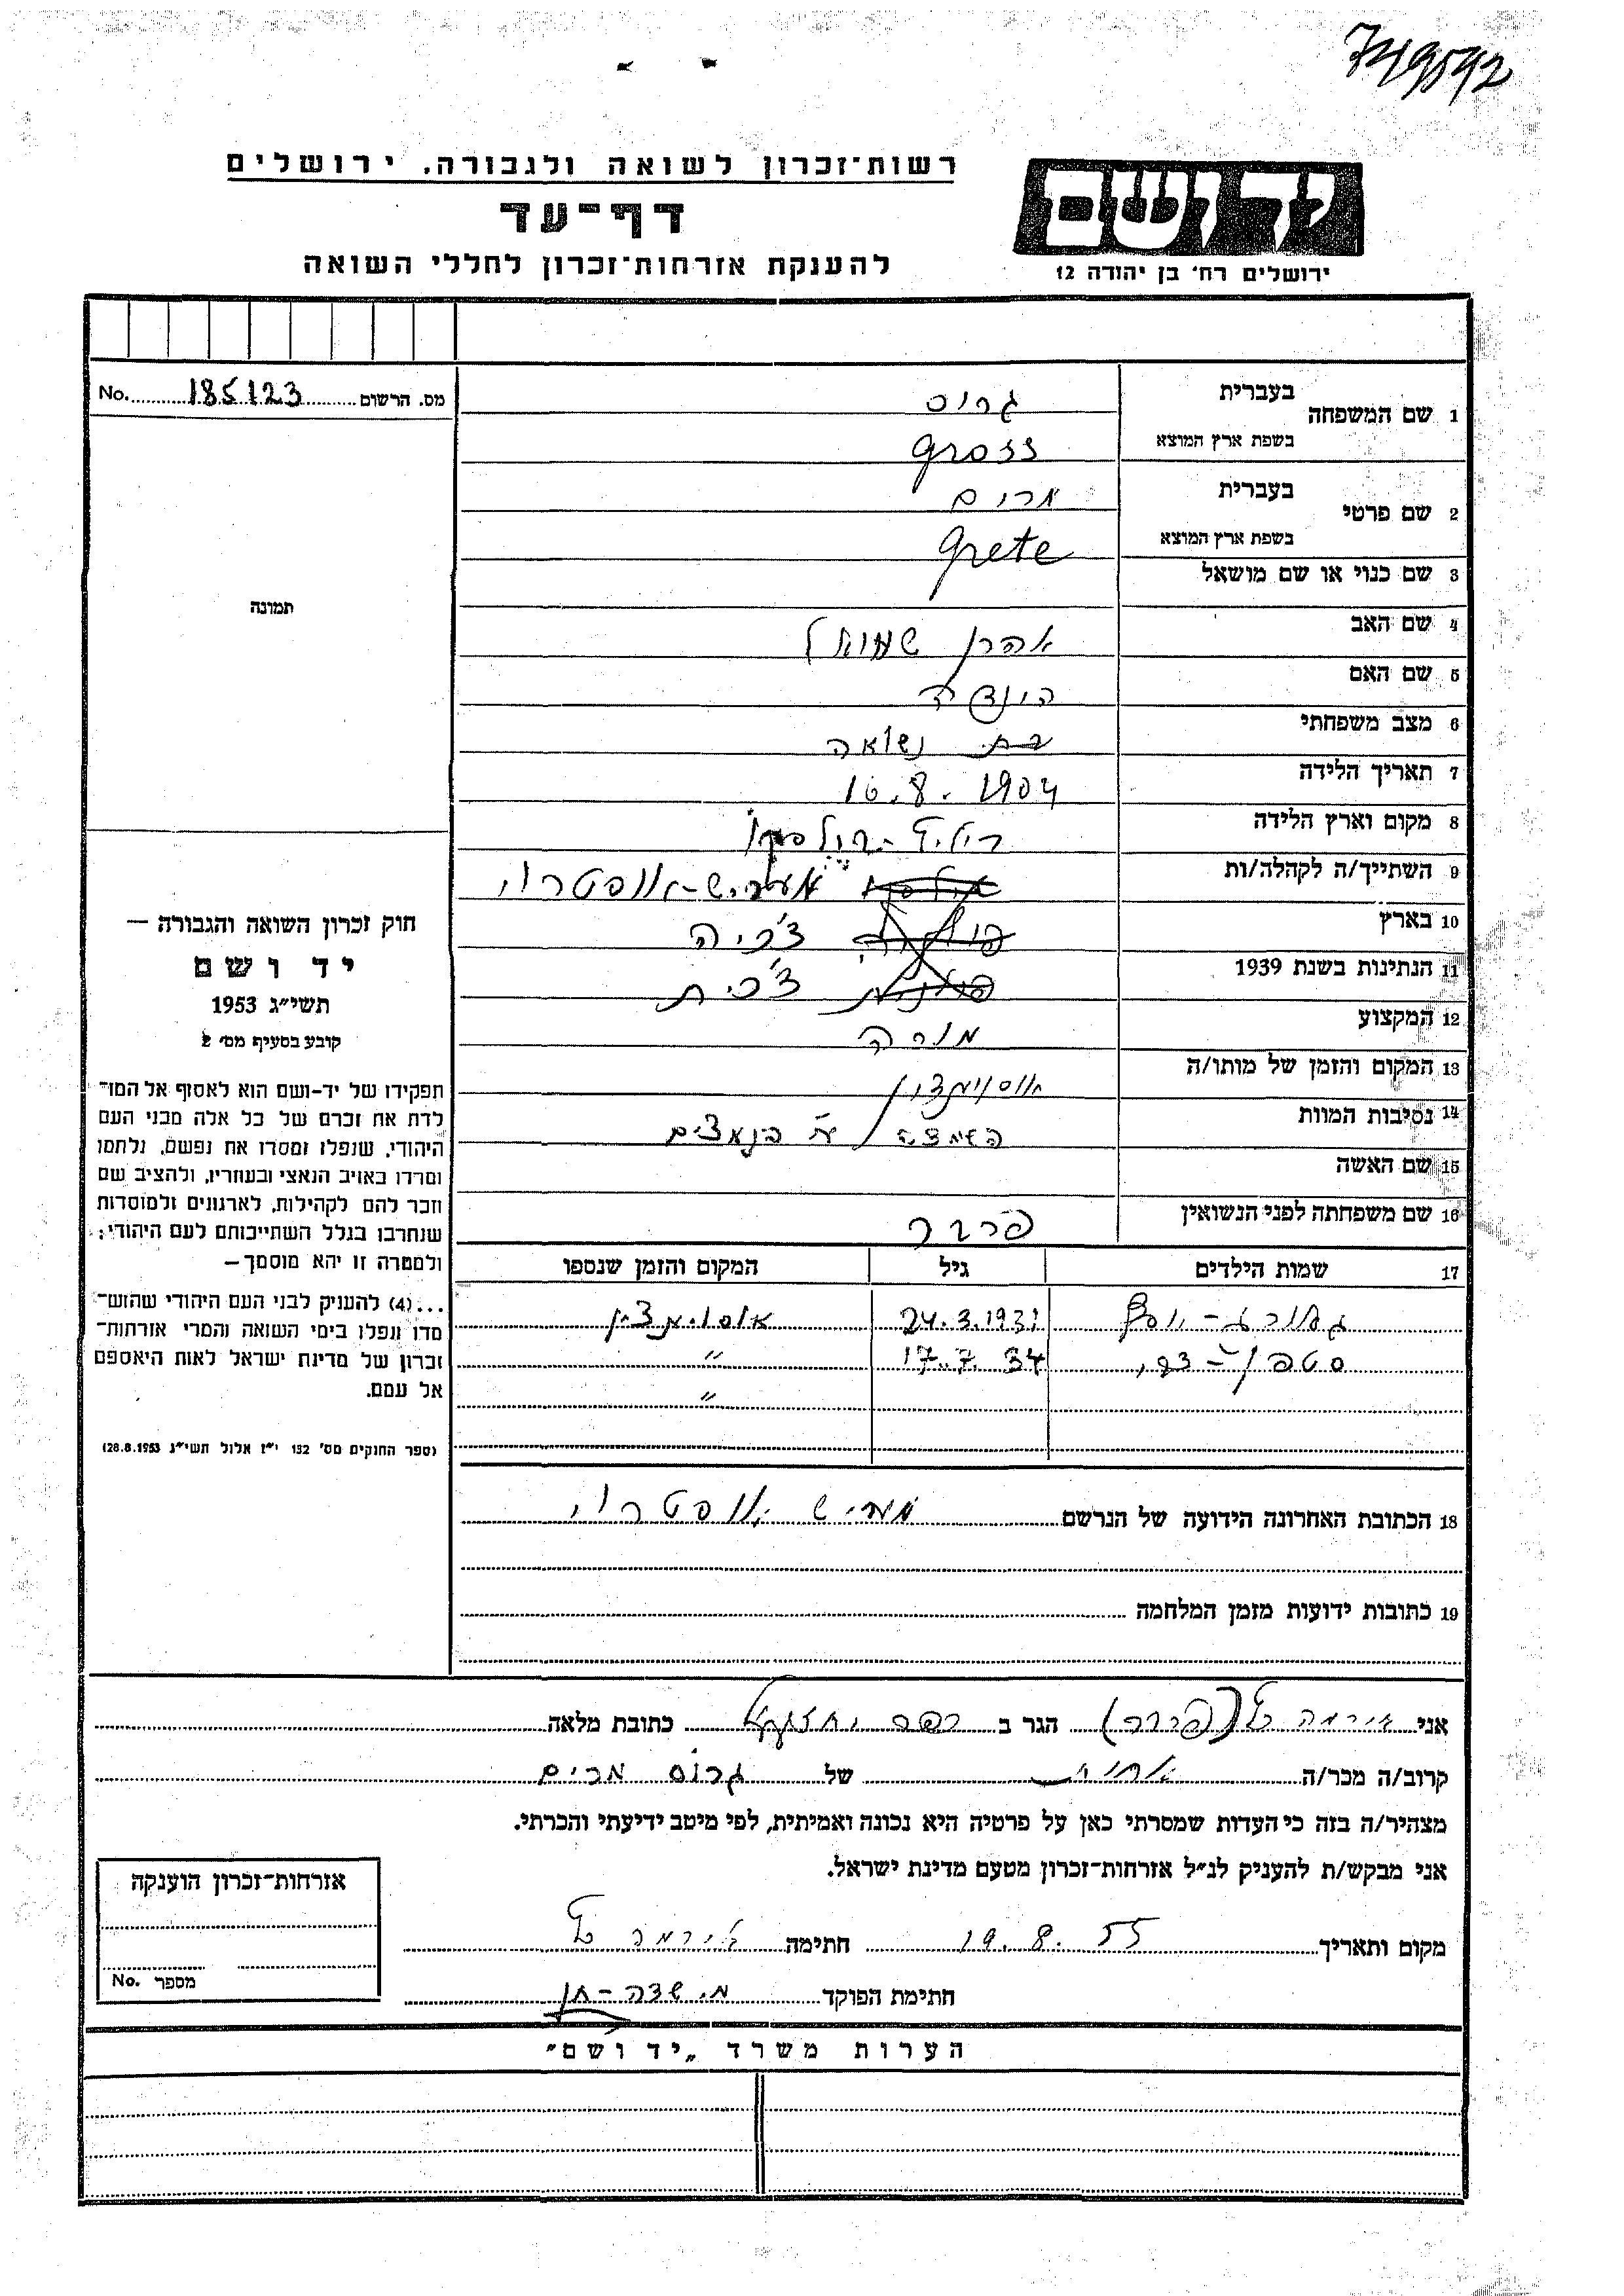 749592
רשות־זכרון לשואה ולגבורה. ירושלים
דף־עד
להענקת אזרחות־זכרון לחללי השואה
יד ושם
ירושלים רח' בן יהודה 12
מס. הרשום 185123 No.
תמונה
1 שם המשפחה בעברית גרוס
בשפת ארץ המוצא Gross
2 שם פרטי בעברית מרים
בשפת ארץ המוצא Grete
3 שם כנוי או שם מושאל
4 שם האב אהרן שמואל
5 שם האם
6 מצב משפחתי נשואה
7 תאריך הלידה 16.8.1904
8 מקום וארץ הלידה
9 השתייך/ה לקהלה/ות מעריש-אוסטרוי
10 בארץ צ'כיה
11 הנתינות בשנת 1939 צ'כית
12 המקצוע מורה
13 המקום והזמן של מותו/ה אוסויצצין
14 נסיבות המוות הושמדה ע"י הנאצים
15 שם האשה
16 שם משפחתה לפני הנשואין פרבר
17 שמות הילדים גיל המקום והזמן שנספו
24.3.1931
17.7.34 "
"
18 הכתובת האחרונה הידועה של הנרשם מעריש אוסטרוי
19 כתובות ידועות מזמן המלחמה
חוק זכרון השואה והגבורה —
יד ושם
תשי"ג 1953
קובע בסעיף מס' 2
תפקידו של יד-ושם הוא לאסוף אל המו־
לדת את זכרם של כל אלה מבני העם
היהודי, שנפלו ומסרו את נפשם, נלחמו
ומרדו באויב הנאצי ובעוזריו, ולהציב שם
וזכר להם לקהילות, לארגונים ולמוסדות
שנחרבו בגלל השתייכותם לעם היהודי;
ולמטרה זו יהא מוסמך—
...(4) להעניק לבני העם היהודי שהוש־
מדו ונפלו בימי השואה והמרי אזרחות־
זכרון של מדינת ישראל לאות היאספם
אל עמם.
(ספר החוקים מס' 132 י"ז אלול תשי"ג 28.8.1953)
אני אירמה (פרבר) הגר ב כפר יחזקאל כתובת מלאה
קרוב/ה מכר/ה אחות של גרוס מרים
מצהיר/ה בזה כי העדות שמסרתי כאן על פרטיה היא נכונה ואמיתית, לפי מיטב ידיעתי והכרתי.
אני מבקש/ת להעניק לנ"ל אזרחות־זכרון מטעם מדינת ישראל.
מקום ותאריך 19.8.55 חתימה אירמה
חתימת הפוקד
אזרחות־זכרון הוענקה
מספר No.
הערות משרד „יד ושם"